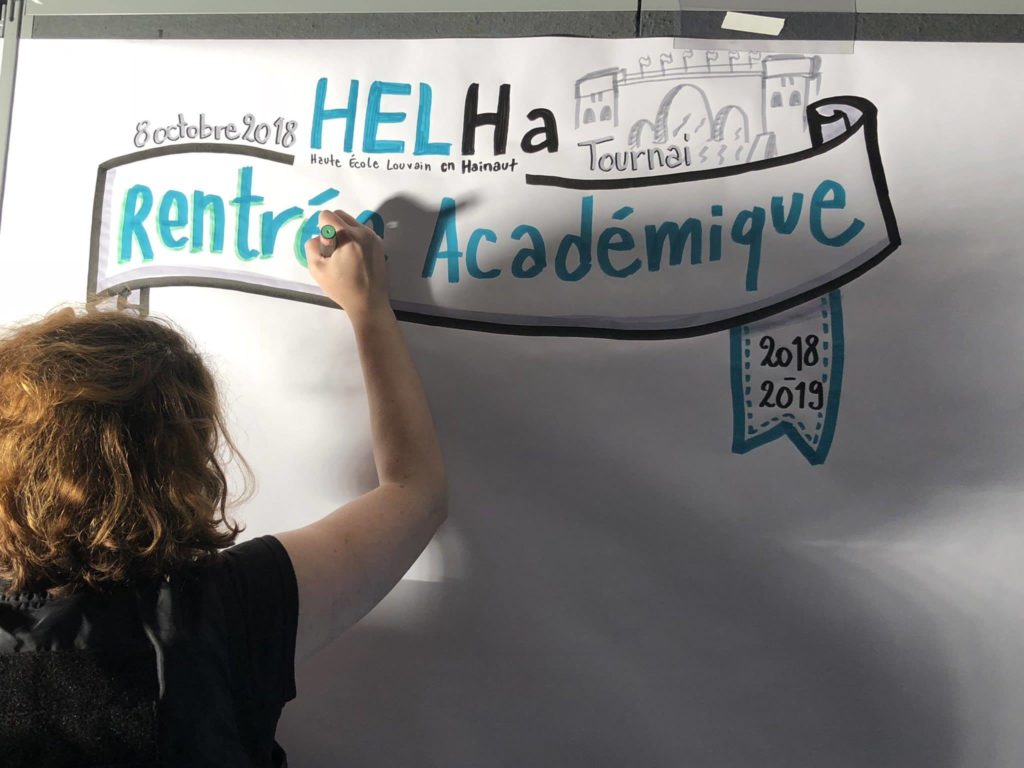 8 octobre 2018
HELHa
Haute École Louvain en Hainaut
Tournai
Rentrée Académique
2018
-
2019